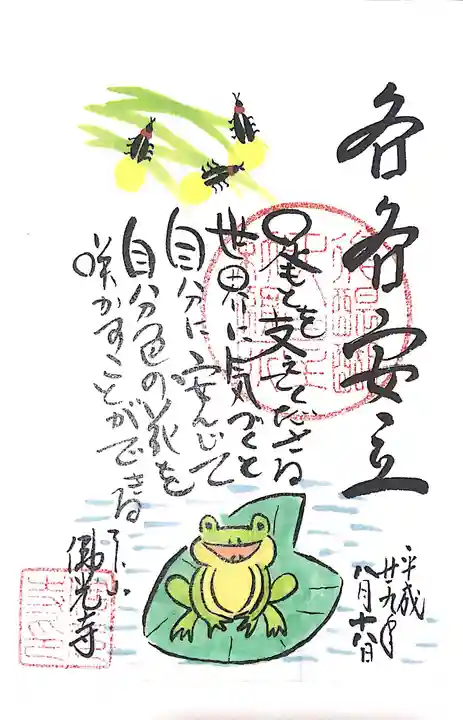 各各安立
足もとを支えてくださる
世界に気づくと
自分に安んじて
自分色の花を
咲かすことができる
佛光寺
平成
廿九年
八月十六日